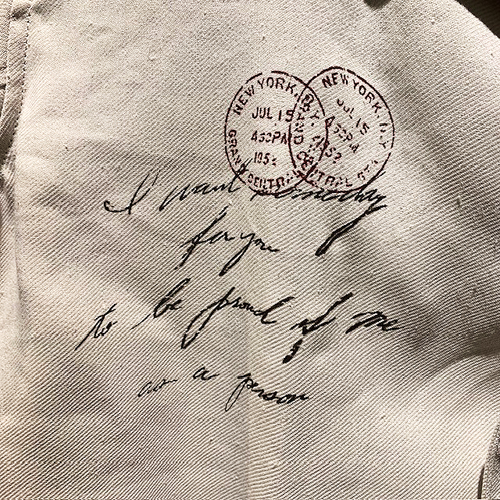 NEW YORK, N.Y.
JUL 15
430PM
195
GRAND CENTRAL
NEW YORK, N.Y.
JUL 15
430PM
1952
GRAND CENTRAL STA.
I want someday
for you
to be proud of me
as a person